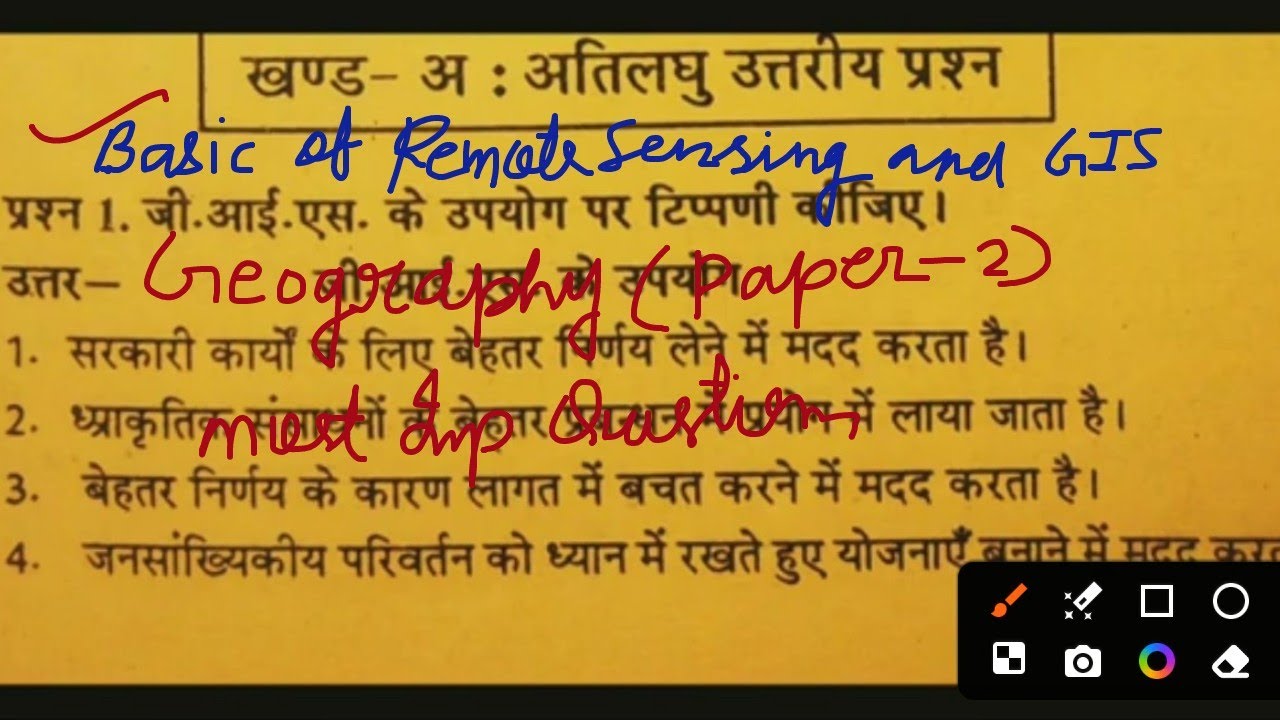 खण्ड- अ : अतिलघु उत्तरीय प्रश्न
Basic of Remote Sensing and GIS
प्रश्न 1. जी.आई.एस. के उपयोग पर टिप्पणी कीजिए।
उत्तर- जी.आई.एस. के उपयोग
Geography (Paper-2)
1. सरकारी कार्यों के लिए बेहतर निर्णय लेने में मदद करता है।
2. ध्प्राकृतिक संसाधनों के बेहतर प्रबन्धन में प्रयोग में लाया जाता है।
most Imp Question
3. बेहतर निर्णय के कारण लागत में बचत करने में मदद करता है।
4. जनसांख्यिकीय परिवर्तन को ध्यान में रखते हुए योजनाएँ बनाने में मदद